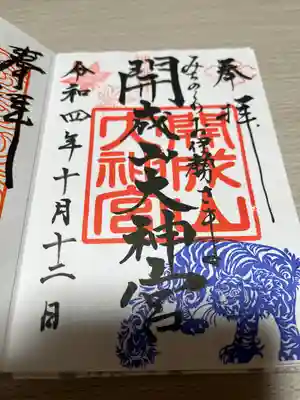 奉拝
みちのくのお伊勢さま
開成山大神宮
令和四年十月十二日
開成山大神宮
奉拝